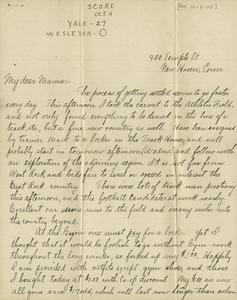 SCORE
OCT. 4
YALE - 27
WESLEYAN - 0
400 Temple St
New Haven, Conn
My dear Mama:-
The process of getting settled seems to go faster
every day. This afternoon I took the car out to the Athletic Field,
and not only found everything to be desired in the line of a
track, etc., but a fine new country as well. Have been assigned
by trainer Mack to a locker in the Track House, and will
start in tomorrow afternoon and follow with
an exploration of the adjoining region. It is not far from
West Rock and bids fair to level or exceed in interest the
East Rock country. There were lots of track men practicing
this afternoon, and the football candidates at work nearby.
Excellent car service runs to the field and many miles into
the country beyond.
At the Gym one must pay for a Locker. Yet I
thought that it would be foolish to go without Gym work
throughout the long winter, so forked up my $ Happily
I am provided with outfit except gym shoes, and those
I bought today at with 10% discount. My are now
all gone and I told, which will last now longer than